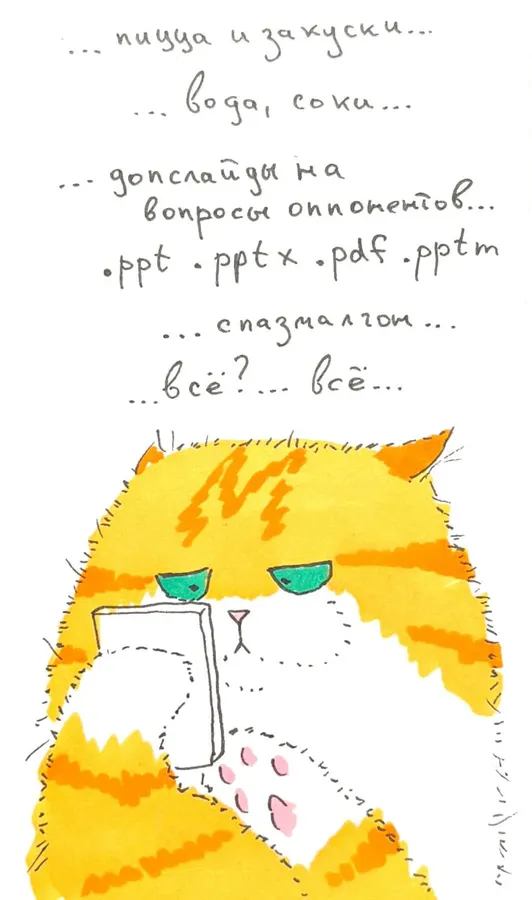 ... пицца и закуски...
... вода, соки...
... допслайды на
вопросы оппонентов...
.ppt .pptx .pdf .pptm
... спазмалгон ...
...всё?... всё...